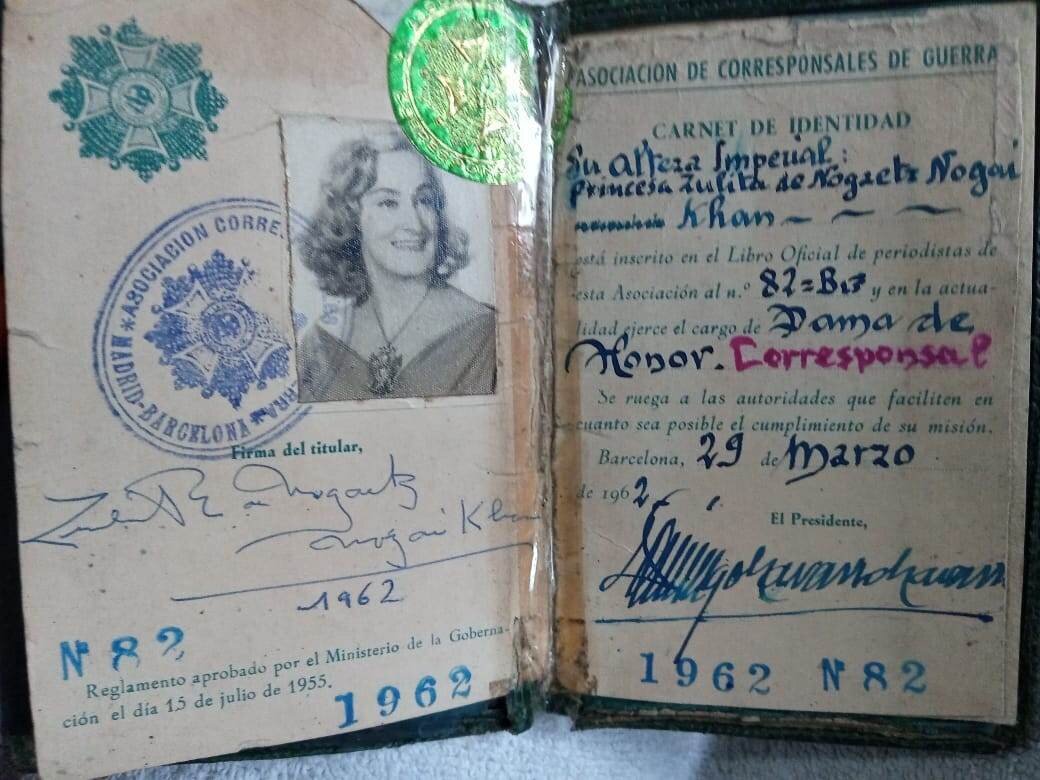 ASOCIACION CORRE
GUERRA
MADRID-BARCELONA
Firma del titular,
Nogaetz
Nogai Khan
1962
Nº 82
Reglamento aprobado por el Ministerio de la Goberna-
ción el día 15 de julio de 1955.
1962
ASOCIACION DE CORRESPONSALES DE GUERRA
CARNET DE IDENTIDAD
Su Alteza Imperial:
Princesa Zulita de Nogaetz Nogai
Khan
está inscrito en el Libro Oficial de periodistas de
esta Asociación al n.º 82=Bis y en la actua-
lidad ejerce el cargo de Dama de
Honor. Corresponsal
Se ruega a las autoridades que faciliten en
cuanto sea posible el cumplimiento de su misión.
Barcelona, 29 de Marzo
de 1962
El Presidente,
1962 Nº 82